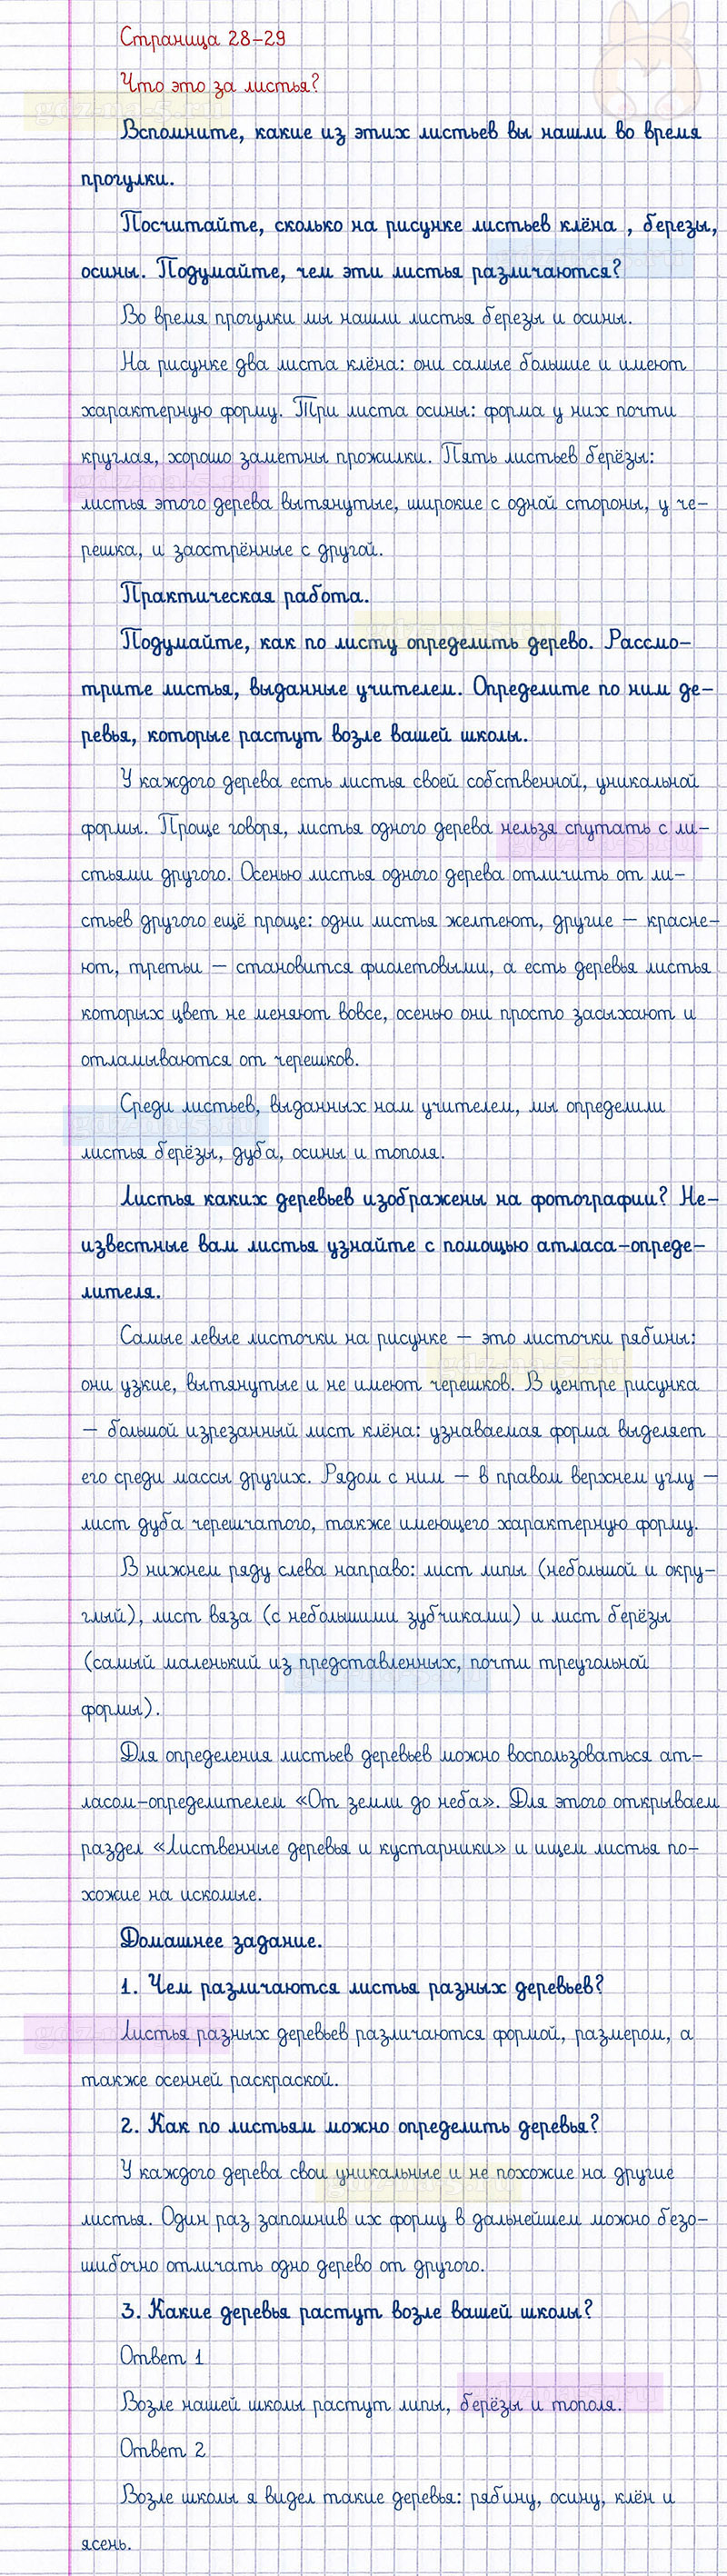 Страница 28-29
Что это за листья?
Вспомните, какие из этих листьев вы нашли во время
прогулки.
Посчитайте, сколько на рисунке листьев клёна , березы,
осины. Подумайте, чем эти листья различаются?
Во время прогулки мы нашли листья березы и осины.
На рисунке два листа клёна: они самые большие и имеют
характерную форму. Три листа осины: форма у них почти
круглая, хорошо заметны прожилки. Пять листьев берёзы:
листья этого дерева вытянутые, широкие с одной стороны, у че-
решка, и заострённые с другой.
Практическая работа.
Подумайте, как по листу определить дерево. Рассмо-
трите листья, выданные учителем. Определите по ним де-
ревья, которые растут возле вашей школы.
У каждого дерева есть листья своей собственной, уникальной
формы. Проще говоря, листья одного дерева нельзя спутать с ли-
стьями другого. Осенью листья одного дерева отличить от ли-
стьев другого ещё проще: одни листья желтеют, другие – красне-
ют, третьи – становится фиолетовыми, а есть деревья листья
которых цвет не меняют вовсе, осенью они просто засыхают и
отламываются от черешков.
Среди листьев, выданных нам учителем, мы определили
листья берёзы, дуба, осины и тополя.
Листья каких деревьев изображены на фотографии? Не-
известные вам листья узнайте с помощью атласа-опреде-
лителя.
Самые левые листочки на рисунке – это листочки рябины:
они узкие, вытянутые и не имеют черешков. В центре рисунка
– большой изрезанный лист клёна: узнаваемая форма выделяет
его среди массы других. Рядом с ним – в правом верхнем углу –
лист дуба черешчатого, также имеющего характерную форму.
В нижнем ряду слева направо: лист липы (небольшой и окру-
глый), лист вяза (с небольшими зубчиками) и лист берёзы
(самый маленький из представленных, почти треугольной
формы).
Для определения листьев деревьев можно воспользоваться ат-
ласом-определителем «От земли до неба». Для этого открываем
раздел «Лиственные деревья и кустарники» и ищем листья по-
хожие на искомые.
Домашнее задание.
1. Чем различаются листья разных деревьев?
Листья разных деревьев различаются формой, размером, а
также осенней раскраской.
2. Как по листьям можно определить деревья?
У каждого дерева свои уникальные и не похожие на другие
листья. Один раз запомнив их форму в дальнейшем можно безо-
шибочно отличать одно дерево от другого.
3. Какие деревья растут возле вашей школы?
Ответ 1
Возле нашей школы растут липы, берёзы и тополя.
Ответ 2
Возле школы я видел такие деревья: рябину, осину, клён и
ясень.